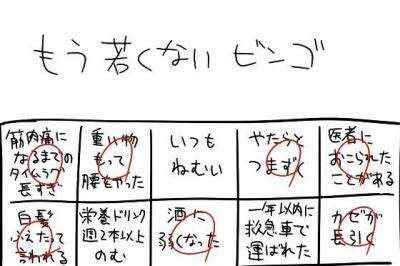 もう若くないビンゴ
筋肉痛に
なるまでの
タイムラグ
長すぎ
重い物
もって
腰をやった
いつも
ねむい
やたらと
つまずく
医者に
おこられた
ことがある
白髪
ふえたって
言われる
栄養ドリンク
週2本以上
のむ
酒に
弱くなった
一年以内に
救急車で
運ばれた
カゼが
長引く